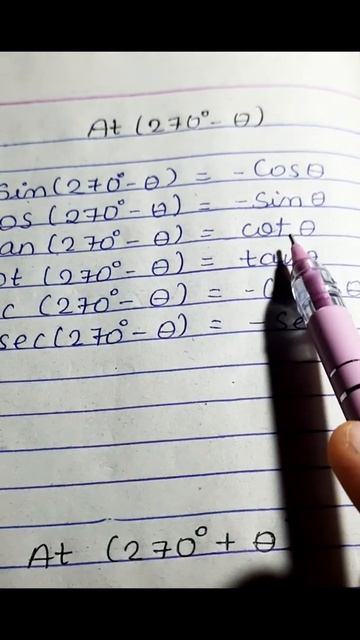 At (270° - θ)
sin(270° - θ) = - Cosθ
os (270° - θ) = - Sinθ
an (270° - θ) = cot θ
ot (270° - θ) = ta
c (270° - θ) = -
sec(270° - θ) = - se
At (270° + θ